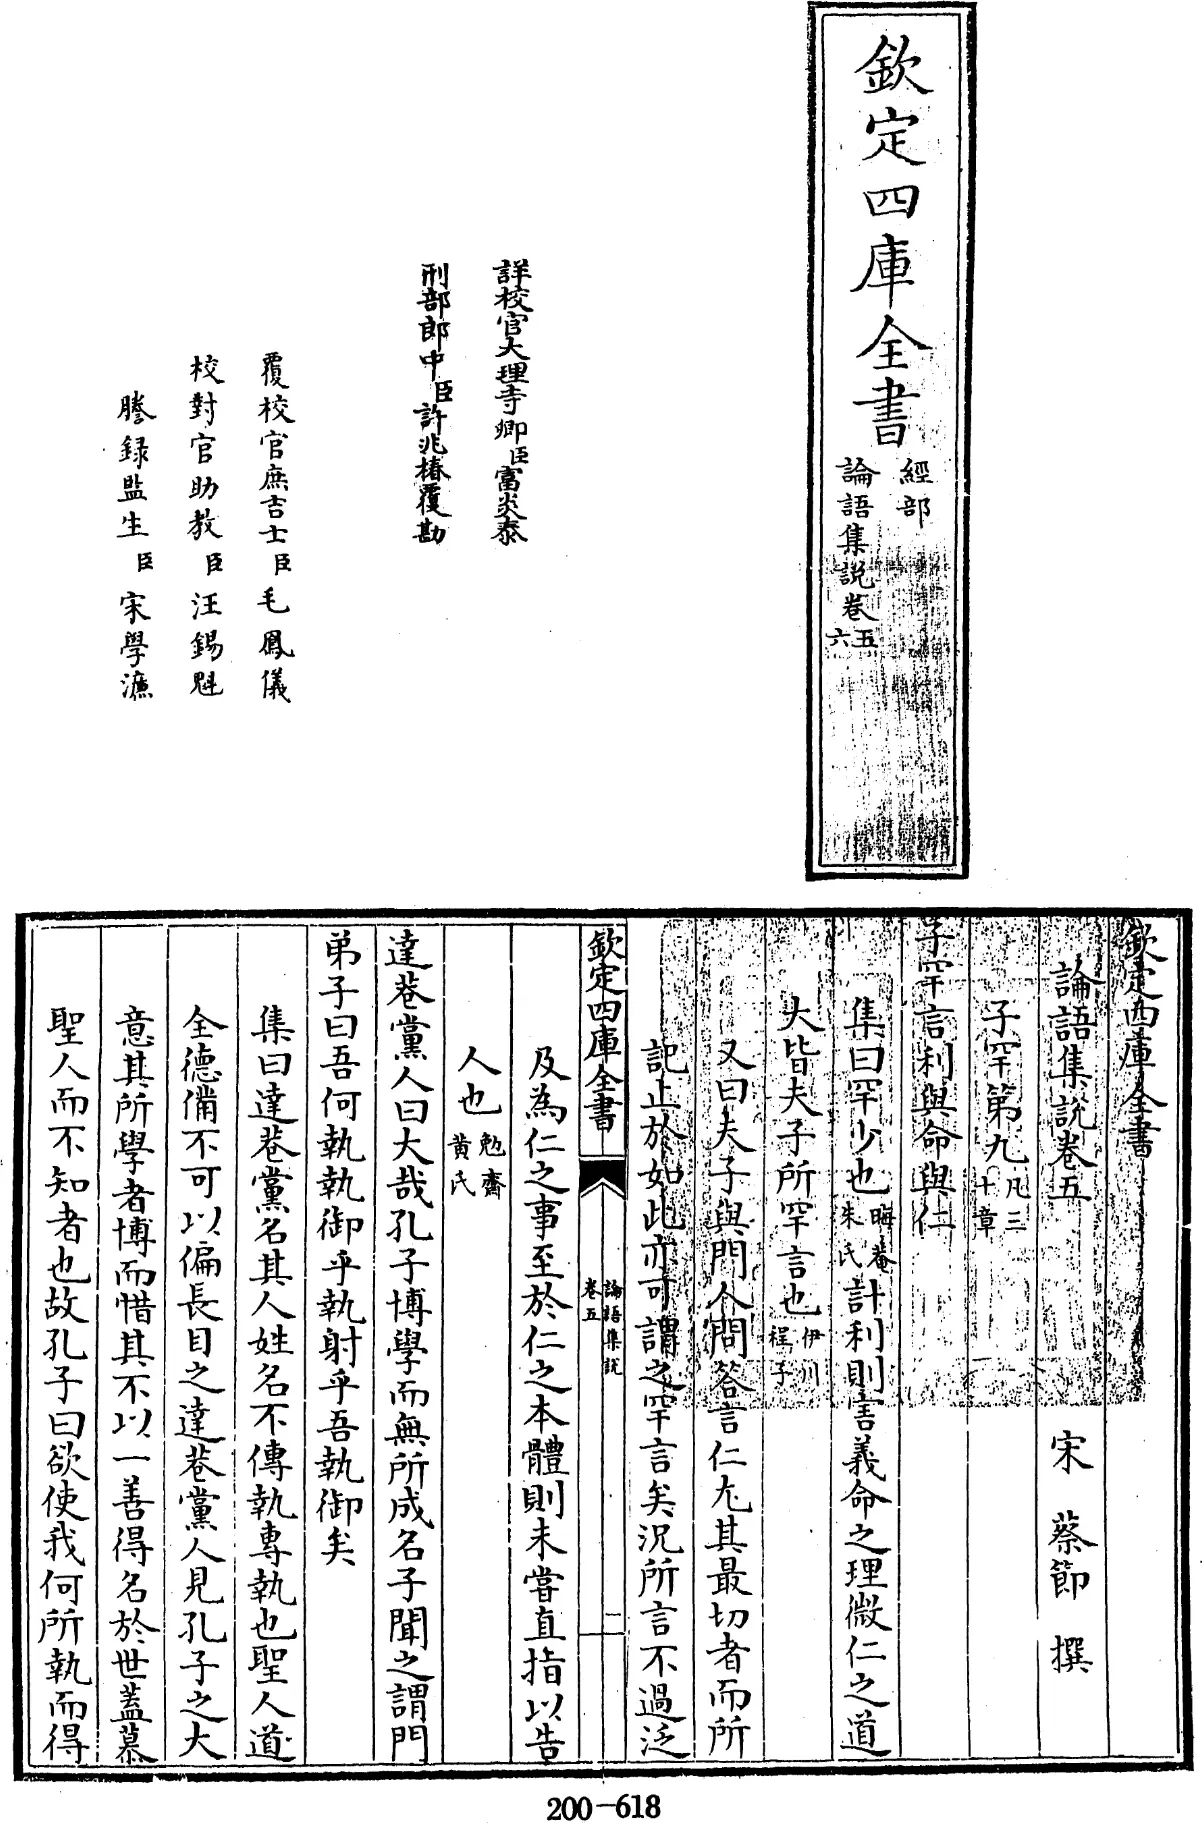 欽定四庫全書
經部
論語集説卷五
六
詳校官大理寺卿臣富炎泰
刑部郎中臣許兆椿覆勘
覆校官庶吉士臣毛鳳儀
校對官助教臣汪錫魁
謄録監生臣宋學濂
欽定四庫全書
論語集説卷五 宋 蔡節 撰
子罕第九凡三十章
子罕言利與命與仁
集曰罕少也晦菴朱氏計利則害義命之理微仁之道
大皆夫子所罕言也伊川程子
又曰夫子與門人問答言仁尤其最切者而所
記止於如此亦可謂之罕言矣況所言不過泛
欽定四庫全書
論語集説
卷五
二
及為仁之事至於仁之本體則未嘗直指以告
人也勉齋黄氏
達巷黨人曰大哉孔子博學而無所成名子聞之謂門
弟子曰吾何執執御乎執射乎吾執御矣
集曰達巷黨名其人姓名不傳執專執也聖人道
全德備不可以偏長目之達巷黨人見孔子之大
意其所學者博而惜其不以一善得名於世蓋慕
聖人而不知者也故孔子曰欲使我何所執而得
200-618